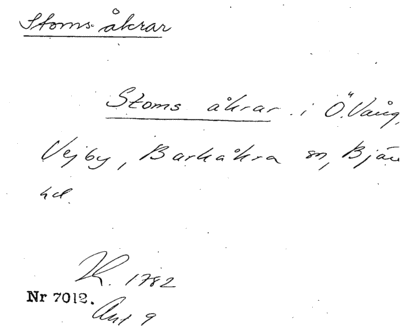 Stoms åkrar
Stoms åkrar i Ö. Vång,
Vejby, Barkåkra sn, Bjäre
hd.
K. 1782
Nr 7012.
Akt 9